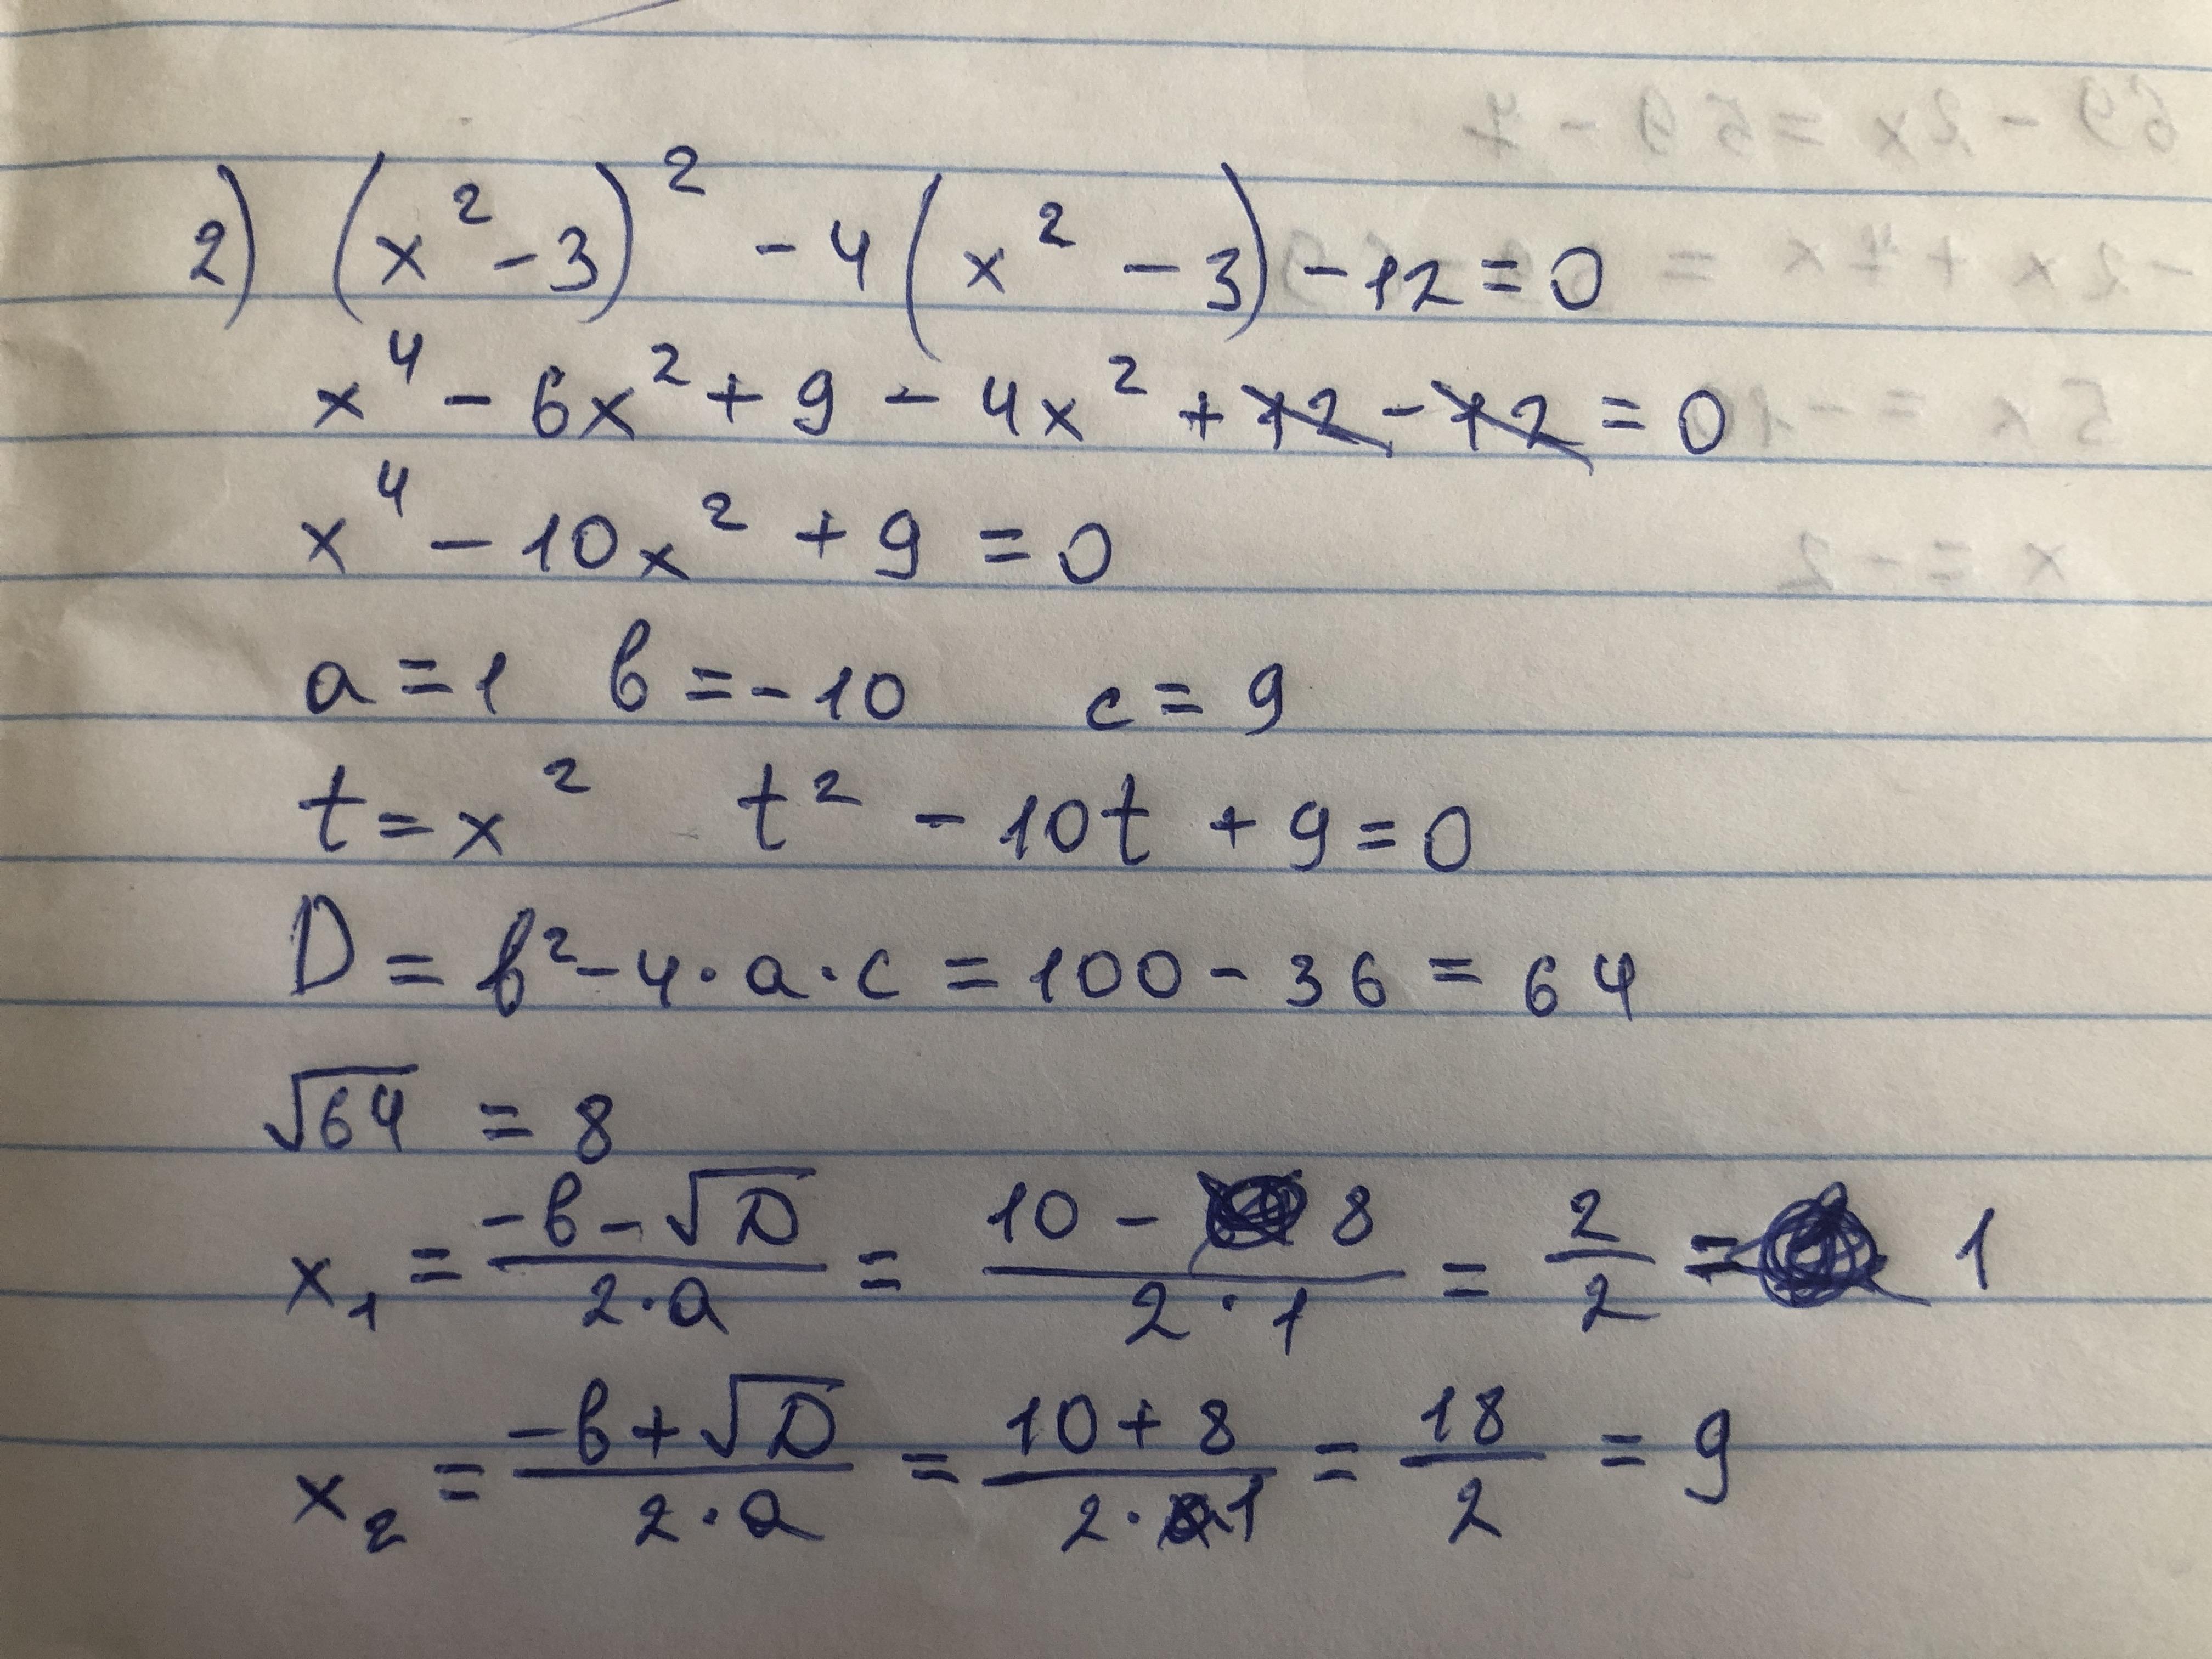 2) (x² - 3)² - 4(x² - 3) - 12 = 0
x⁴ - 6x² + 9 - 4x² + 12 - 12 = 0
x⁴ - 10x² + 9 = 0
a = 1 в = -10 c = 9
t = x² t² - 10t + 9 = 0
D = в² - 4·a·c = 100 - 36 = 64
√64 = 8
x₁ = (-в - √D)/(2·a) = (10 - 8)/(2·1) = 2/2 = 1
x₂ = (-в + √D)/(2·a) = (10 + 8)/(2·1) = 18/2 = 9
69 - 2x = 59 - 7
x = -2